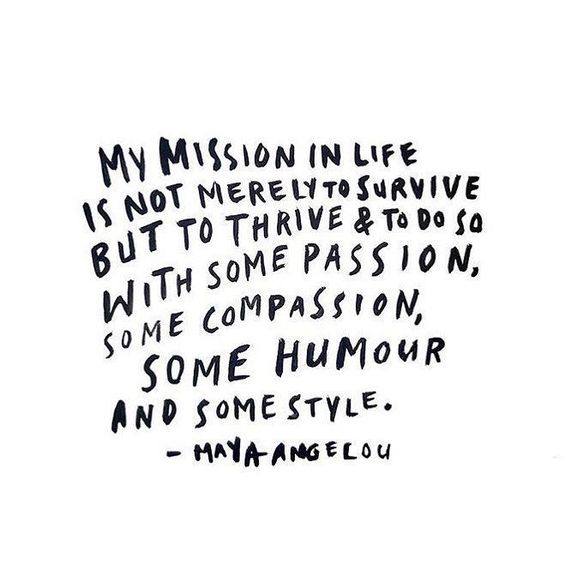 MY MISSION IN LIFE
IS NOT MERELY TO SURVIVE
BUT TO THRIVE & TO DO SO
WITH SOME PASSION,
SOME COMPASSION,
SOME HUMOUR
AND SOME STYLE.
- MAYA ANGELOU